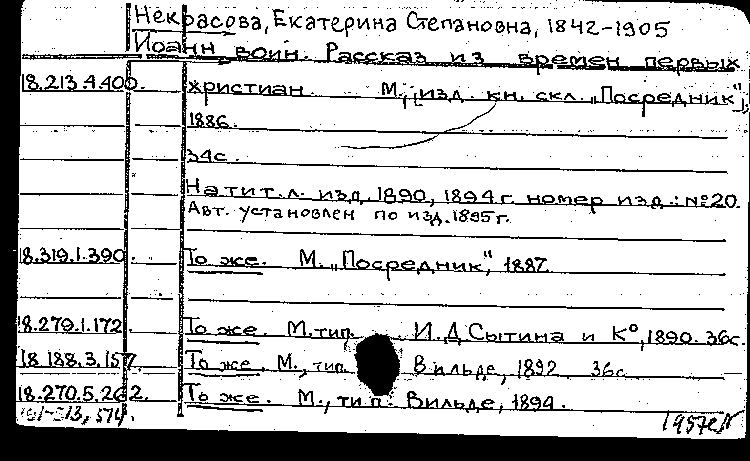 Некрасова, Екатерина Степановна, 1842-1905
Иоанн воин. Рассказ из времен первых
18.213.4.400. христиан. М., [изд. кн. скл. „Посредник"],
1886.
34с.
На тит. л. изд. 1890, 1894 г. номер изд.: №20.
Авт. установлен по изд. 1895 г.
18.319.1.390. То же. М. „Посредник", 1887.
18.279.1.172. То же. М. тип. И.Д Сытина и К°, 1890. 36с.
18.188.3.157. То же. М., тип. Вильде, 1892 36с.
18.270.5.262. То же. М., тип. Вильде, 1894.